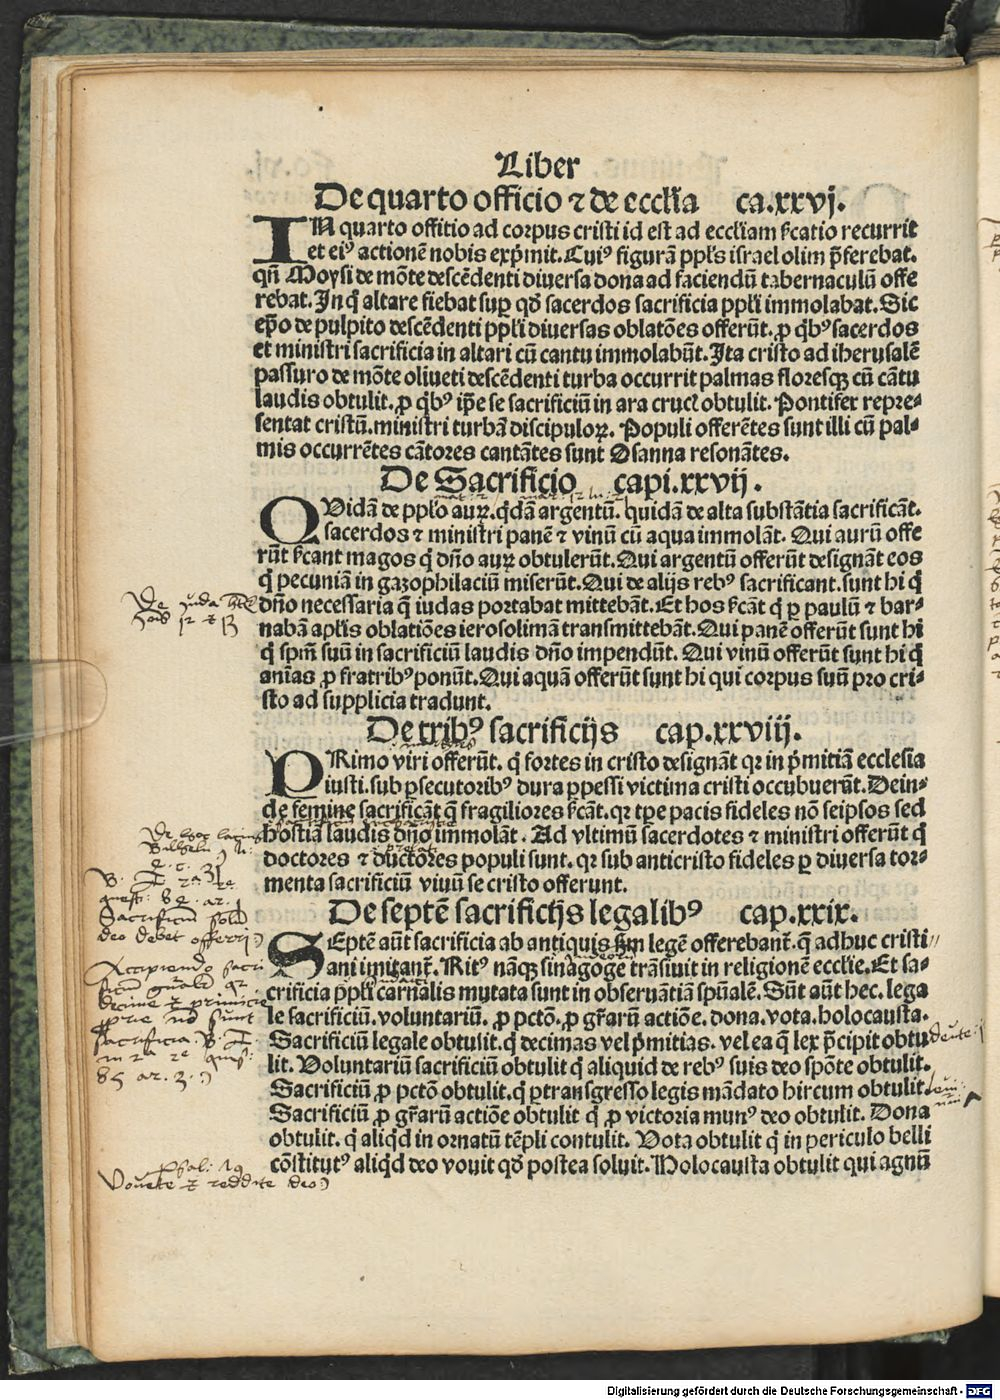 Liber
De quarto officio ⁊ de eccl̄ia ca.xxvj.
IN quarto offitio ad corpus cristi id est ad eccl̄iam ſ̄catio recurrit
et eiꝰ actionē nobis exp̄mit. Cuiꝰ figurā ppl̄s israel olim p̄ferebat.
qn̄ Moysi de mōte descēdenti diuersa dona ad faciendū tabernaculū offe
rebat. In q̄ altare fiebat suꝑ qd̄ sacerdos sacrificia ppl̄i immolabat. Sic
ep̄o de pulpito descēdenti ppl̄i diuersas oblatōes offerūt. ꝓ q̄bꝰ sacerdos
et ministri sacrificia in altari cū cantu immolabūt. Ita cristo ad iherusalē
passuro de mōte oliueti descēdenti turba occurrit palmas floresqꝫ cū cātu
laudis obtulit. ꝓ q̄bꝰ ip̄e se sacrificiū in ara cruc̄ obtulit. Pontifex repre⸗
sentat cristū. ministri turbā discipuloꝝ. Populi offerētes sunt illi cū pal⸗
mis occurrētes cātores cantātes sunt Osanna resonātes.
De Sacrificio capi.xxvij.
QVidā de ppl̄o auꝝ. q̄dā argentū. quidā de alta substātia sacrificāt.
sacerdos ⁊ ministri panē ⁊ vinū cū aqua immolāt. Qui aurū offe
rūt ſ̄cant magos q̄ dn̄o auꝝ obtulerūt. Qui argentū offerūt designāt eos
q̄ pecuniā in gazophilaciū miserūt. Qui de alijs rebꝰ sacrificant. sunt hi q̄
dn̄o necessaria q̄ iudas portabat mittebāt. Et hos ſ̄cāt q̄ ꝑ paulū ⁊ bar⸗
nabā apl̄is oblatiōes ierosolimā transmittebāt. Qui panē offerūt sunt hi
q̄ spm̄ suū in sacrificiū laudis dn̄o impendūt. Qui vinū offerūt sunt hi q̄
anīas ꝓ fratribꝰ ponūt. Qui aquā offerūt sunt hi qui corpus suū pro cri⸗
sto ad supplicia tradunt.
De tribꝰ sacrificijs cap.xxviij.
PRimo viri offerūt. q̄ fortes in cristo designāt qꝛ in p̄mitiā ecclesia
iusti. sub ꝑsecutoribꝰ dura ꝑpessi victima cristi occubuerūt. Dein⸗
de femine sacrificāt q̄ fragiliores ſ̄cāt. qꝛ tꝑe pacis fideles nō seipsos sed
hostiā laudis dn̄o immolāt. Ad vltimū sacerdotes ⁊ ministri offerūt q̄
doctores ⁊ ductores populi sunt. qꝛ sub anticristo fideles ꝑ diuersa tor⸗
menta sacrificiū viuū se cristo offerunt.
De septē sacrificijs legalibꝰ cap.xxix.
SEptē aūt sacrificia ab antiquis ſm̄ legē offerebant̄. q̄ adhuc cristi
ani imitant̄. Ritꝰ nāqꝫ sinagoge trāsiuit in religionē eccl̄ie. Et sa⸗
crificia ppl̄i carnalis mutata sunt in obseruātiā spūalē. Sūt aūt hec. lega
le sacrificiū. voluntariū. ꝓ pctō. ꝓ gr̄arū actiōe. dona. vota. holocausta.
Sacrificiū legale obtulit. q̄ decimas vel p̄mitias. vel ea q̄ lex p̄cipit obtu
lit. Voluntariū sacrificiū obtulit q̄ aliquid de rebꝰ suis deo spōte obtulit.
Sacrificiū ꝓ pctō obtulit. q̄ ꝑ transgresso legis mādato hircum obtulit.
Sacrificiū ꝓ gr̄arū actiōe obtulit q̄ ꝓ victoria munꝰ deo obtulit. Dona
obtulit. q̄ aliq̄d in ornatū tēpli contulit. Vota obtulit q̄ in periculo belli
cōstitutꝰ aliq̄d deo vouit qd̄ postea soluit. Holocausta obtulit qui agnū
Sacrificiū soli
deo debet offerri
Vouete ⁊ reddite deo
Digitalisierung gefördert durch die Deutsche Forschungsgemeinschaft - DFG